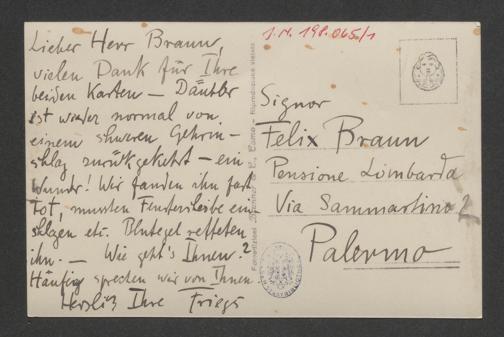 Lieber Herr Braun,
vielen Dank für Ihre
beiden Karten – Däubler
ist wieder normal von
einem schweren Gehirn-
schlag zurückgekehrt – ein
Wunder! Wir fanden ihn fast
tot, mussten Fensterscheibe ein-
schlagen etc. Blutegel retteten
ihn. – Wie geht's Ihnen?
Häufig sprechen wir von Ihnen.
Herzlich Ihre
J.N. 198.065/1
Signor
Felix Braun
Pensione Lombarda
Via Sammartino 2
Palermo